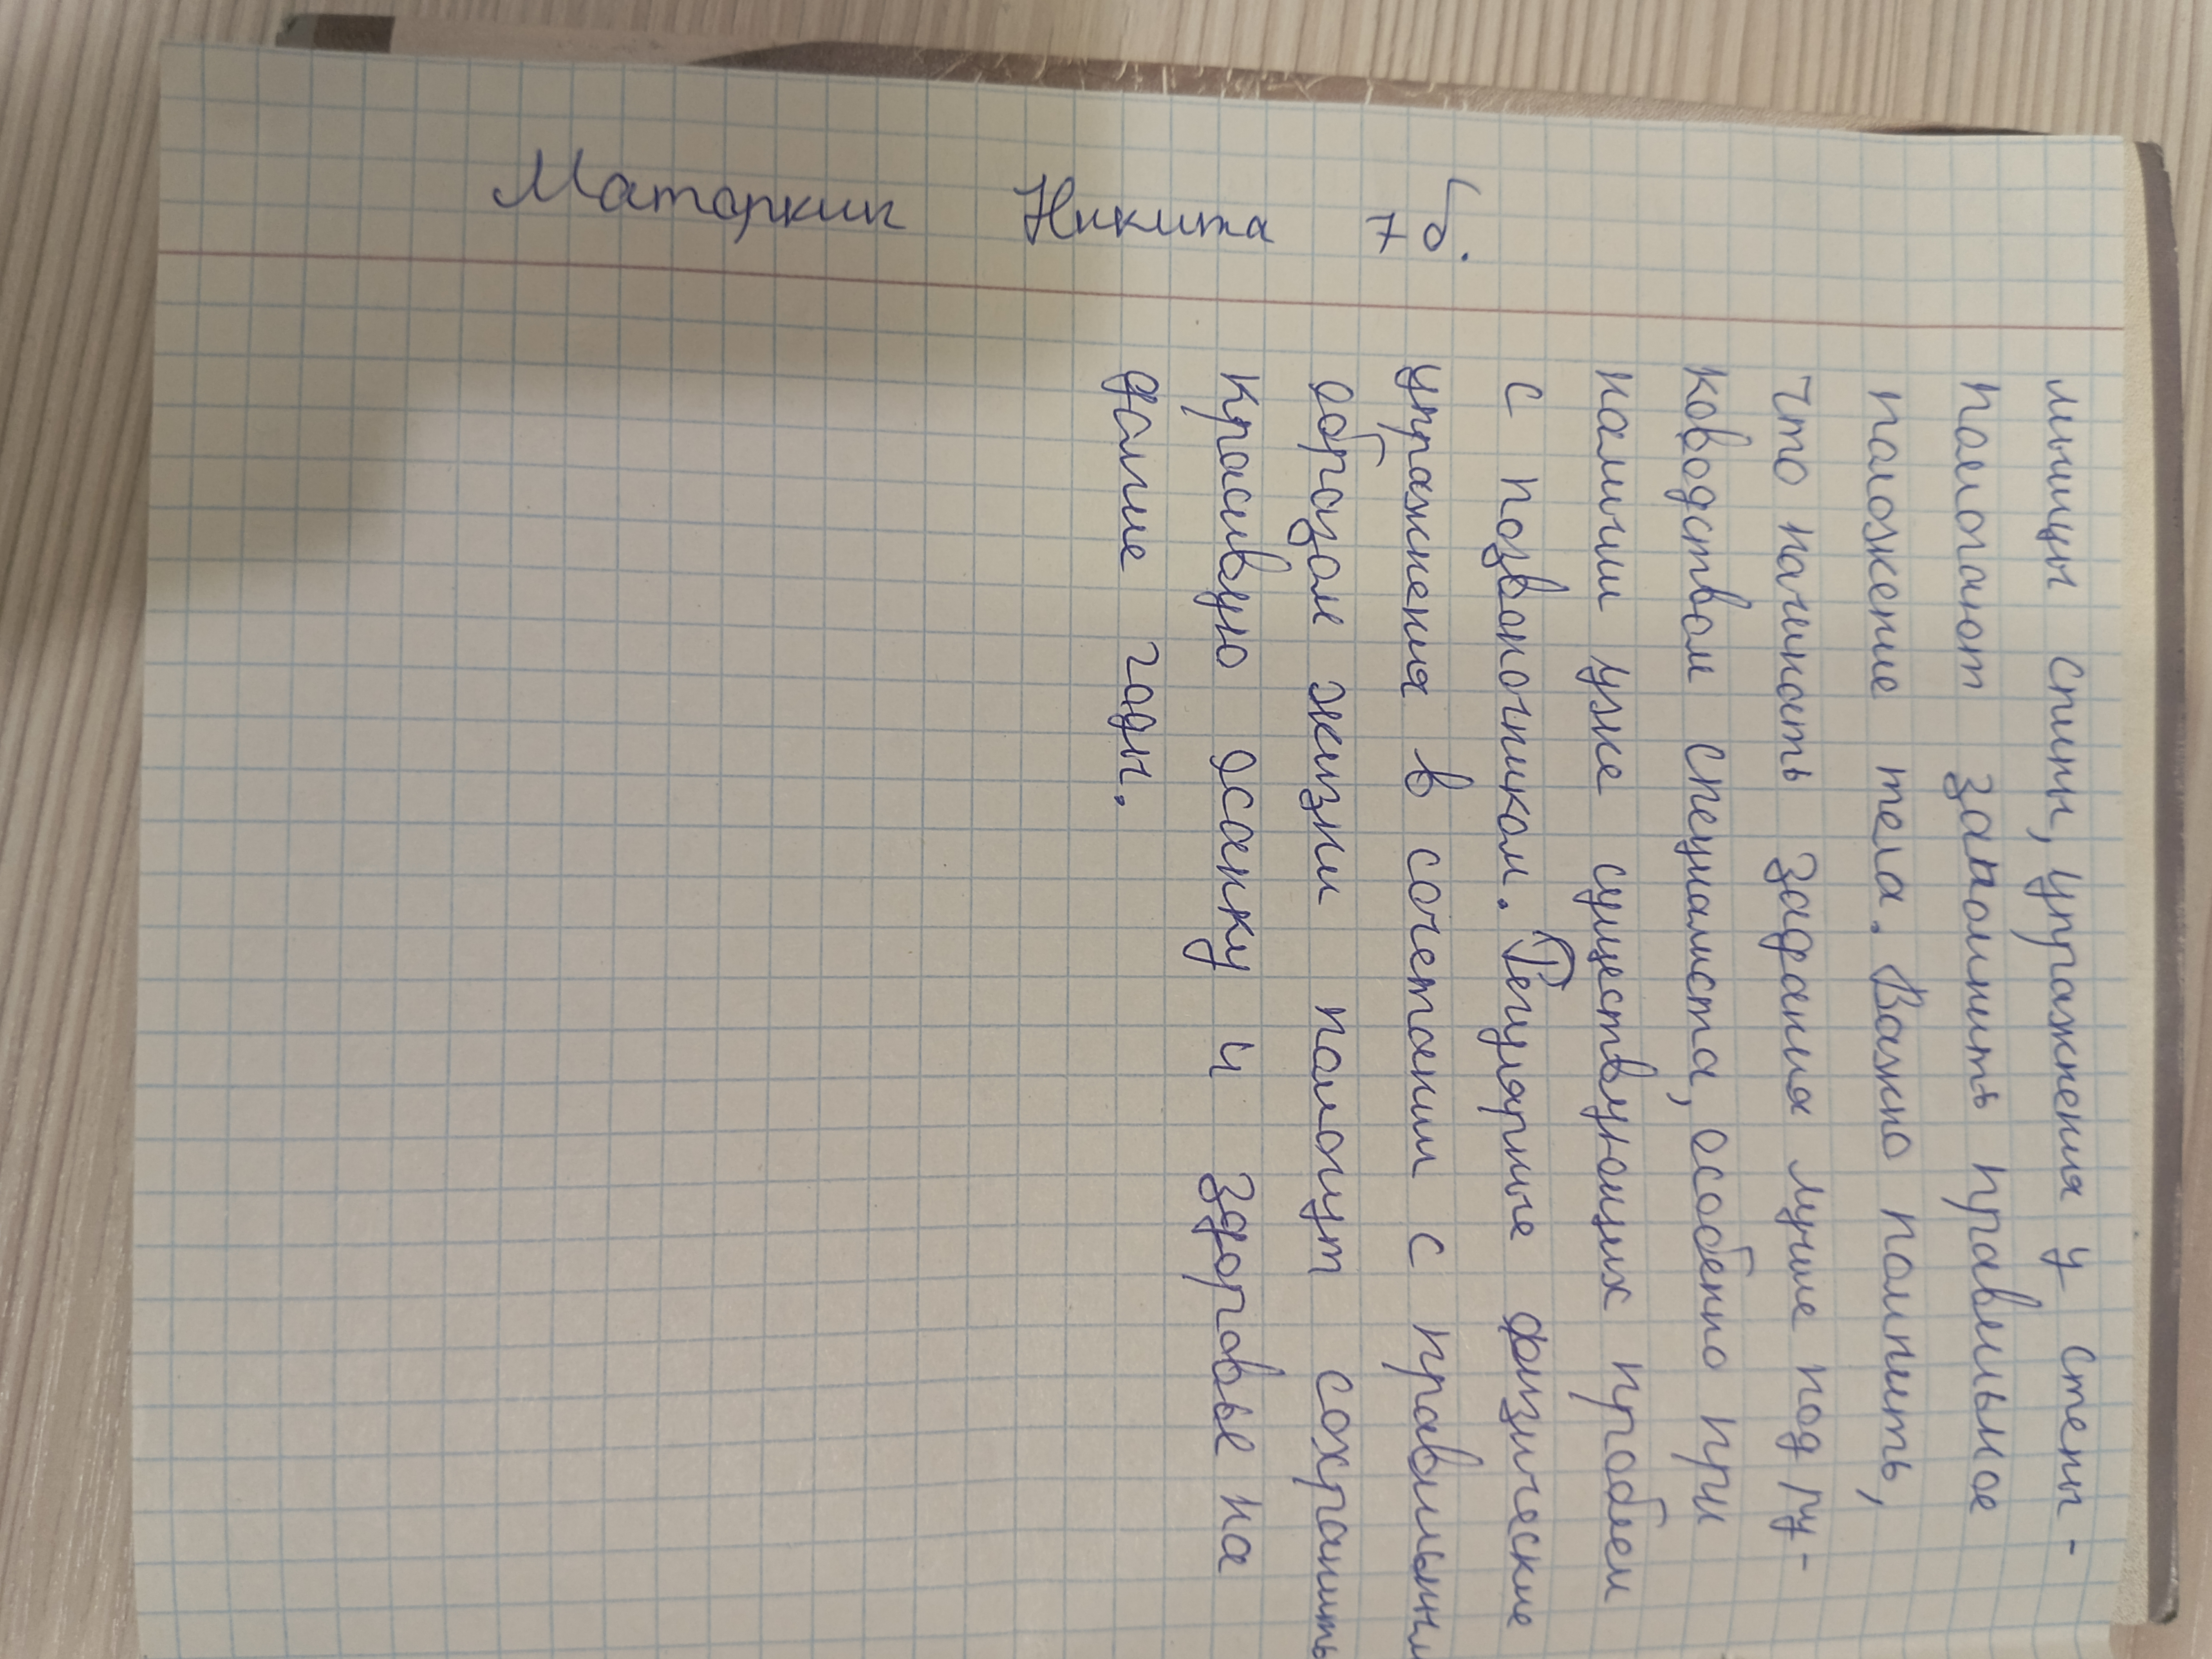 Маторкин Никита 7б.
мышцы спины, упражнения у стены -
помогают запомнить правильное
положение тела. Важно помнить,
что начинать задания лучше под ру-
ководством специалиста, особенно при
наличии уже существующих проблем
с позвоночником. Регулярные физические
упражнения в сочетании с правильным
образом жизни помогут сохранить
красивую осанку и здоровье на
долгие годы.